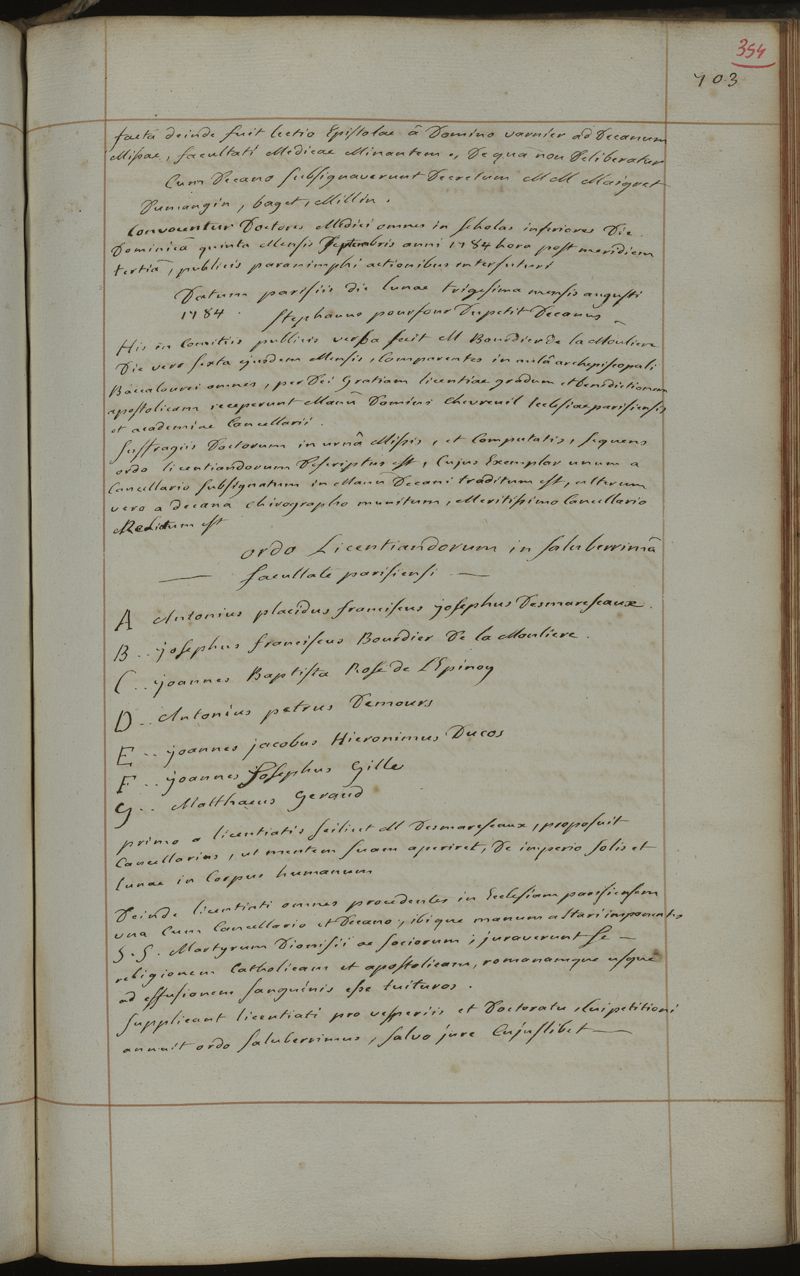 354
703
facta deinde fuit lectio Epistolae â Domino varnier ad Decanum
Missae, facultati Medicae Minantem e, De qua non Deliberatur
Cum Decano Subsignaverunt Decretum MM Maigret
Dumangin, baget, Millin.
Convocentur Doctores Medici omnes in scholas inferiores Die
Dominicâ quinta Mensis Septembris anni 1784 hora post meridiem
tertiâ, publicis paranimphi actionibus interfuturi
Datum parisiis die lunae trigesima mensis augusti
1784. Stephanus pourfour Dupetit Decanus
His in Comitiis publicis verba fecit M Bourdier de la Mouliere
Die vero sexta ejusdem Mensis, Comparentes in aulâ archepiscopali
Baccalaurei omnes, per Dei Gratiam licentiae gradum et benedictionem
apostolicam receperunt Manû Domini Chevreuil Ecclesiae parisiensis
et academiae Cancellarii.
Suffragiis Doctorum in urnâ Missis, et Computatis, sequens
ordo licentiandorum Descriptus est, Cujus Exemplar unum a
Cancellario subsignatum in Manû Decani traditum est, alterum
vero a decano chirographo munitum, Meritissimo Cancellario
Relictum est
ordo Licentiandorum in saluberrimâ
— facultate parisiensi —
A Antonius placidus franciscus josephus Desmareseaux.
B .. josephus franciscus Bourdier De la Mouliere.
C .. joannes Baptista Rose de L'Epinoy
D .. Antonius petrus Demours
E .. joannes jacobus Hieronimus Ducos
F .. joannes Josephus Gille
G .. Matthaeus Geraud
primo a licentiatis scilicet M Desmareseaux, proposuit
Cancellarius, ut mentem suam aperiret, De imperio solis et
lunae in Corpus humanum
Deinde licentiati omnes procedentes in Ecclesiam parisiensem
una Cum Cancellario et Decano, ibique manum altari imponentes
S. S. Martyrum Dionisii ac sociorum; juraverunt se —
religionem Catholicam et apostolicam, romanamque usque
ad effusionem sanguinis esse tuituros.
Supplicant licentiati pro vesperiis et Doctoratu, Cui petitioni
annuit ordo saluberrimus, salvo jure Cujuslibet —